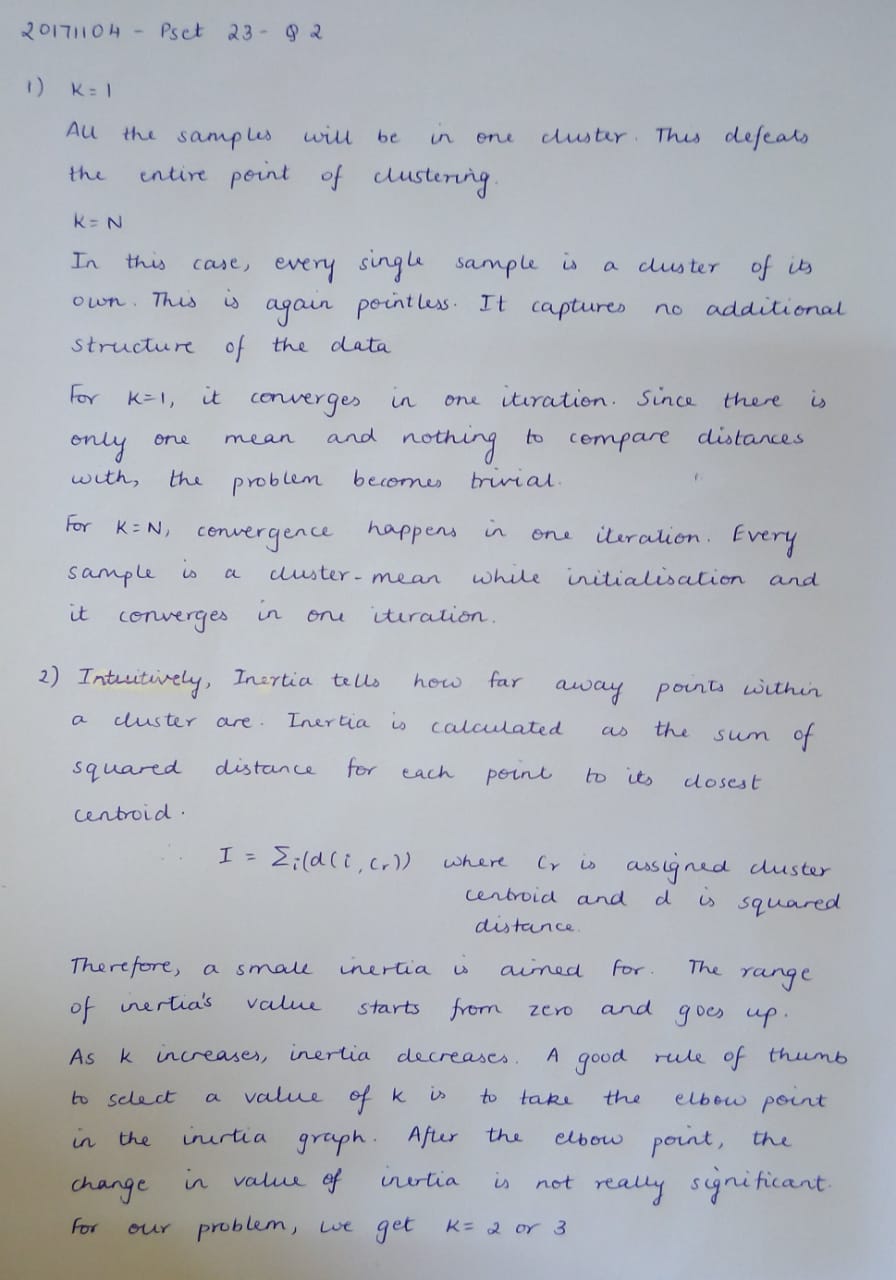 20171104 - Pset 23 - Q2
1) K=1
All the samples will be in one cluster. This defeats
the entire point of clustering.
K=N
In this case, every single sample is a cluster of its
own. This is again pointless. It captures no additional
structure of the data
For K=1, it converges in one iteration. Since there is
only one mean and nothing to compare distances
with, the problem becomes trivial.
For K=N, convergence happens in one iteration. Every
sample is a cluster-mean while initialisation and
it converges in one iteration.
2) Intuitively, Inertia tells how far away points within
a cluster are. Inertia is calculated as the sum of
squared distance for each point to its closest
centroid.
I = Σi(d(i,cr)) where Cr is assigned cluster
centroid and d is squared
distance.
Therefore, a small inertia is aimed for. The range
of inertia's value starts from zero and goes up.
As k increases, inertia decreases. A good rule of thumb
to select a value of k is to take the elbow point
in the inertia graph. After the elbow point, the
change in value of inertia is not really significant.
For our problem, we get K= 2 or 3